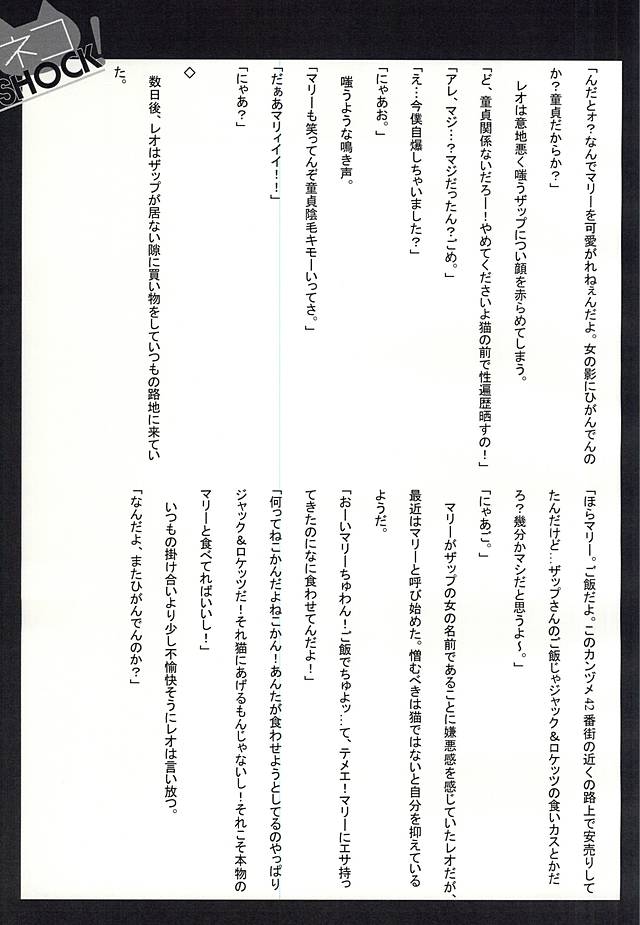 ネコ
SHOCK!
「んだとォ？なんでマリーを可愛がれねぇんだよ。女の影にひがんでんの
か？童貞だからか？」
レオは意地悪く嗤うザップについ顔を赤らめてしまう。
「ど、童貞関係ないだろー！やめてくださいよ猫の前で性遍歴晒すの！」
「アレ、マジ…？マジだったん？ごめ。」
「え…今僕自爆しちゃいました？」
「にゃあお。」
嗤うような鳴き声。
「マリーも笑ってんぞ童貞陰毛キモーいってさ。」
「だぁあマリィイイ！！」
「にゃあ？」
◇
数日後、レオはザップが居ない隙に買い物をしていつもの路地に来てい
た。
「ほらマリー。ご飯だよ。このカンヅメ42番街の近くの路上で安売りして
たんだけど…ザップさんのご飯じゃジャック＆ロケッツの食いカスとかだ
ろ？幾分かマシだと思うよ～。」
「にゃあご。」
マリーがザップの女の名前であることに嫌悪感を感じていたレオだが、
最近はマリーと呼び始めた。憎むべきは猫ではないと自分を抑えている
ようだ。
「おーいマリーちゅわん！ご飯でちゅよッ…て、テメエ！マリーにエサ持っ
てきたのになに食わせてんだよ！」
「何ってねこかんだよねこかん！あんたが食わせようとしてるのやっぱり
ジャック＆ロケッツだ！それ猫にあげるもんじゃないし！それこそ本物の
マリーと食べてればいいし！」
いつもの掛け合いより少し不愉快そうにレオは言い放つ。
「なんだよ、またひがんでんのか？」